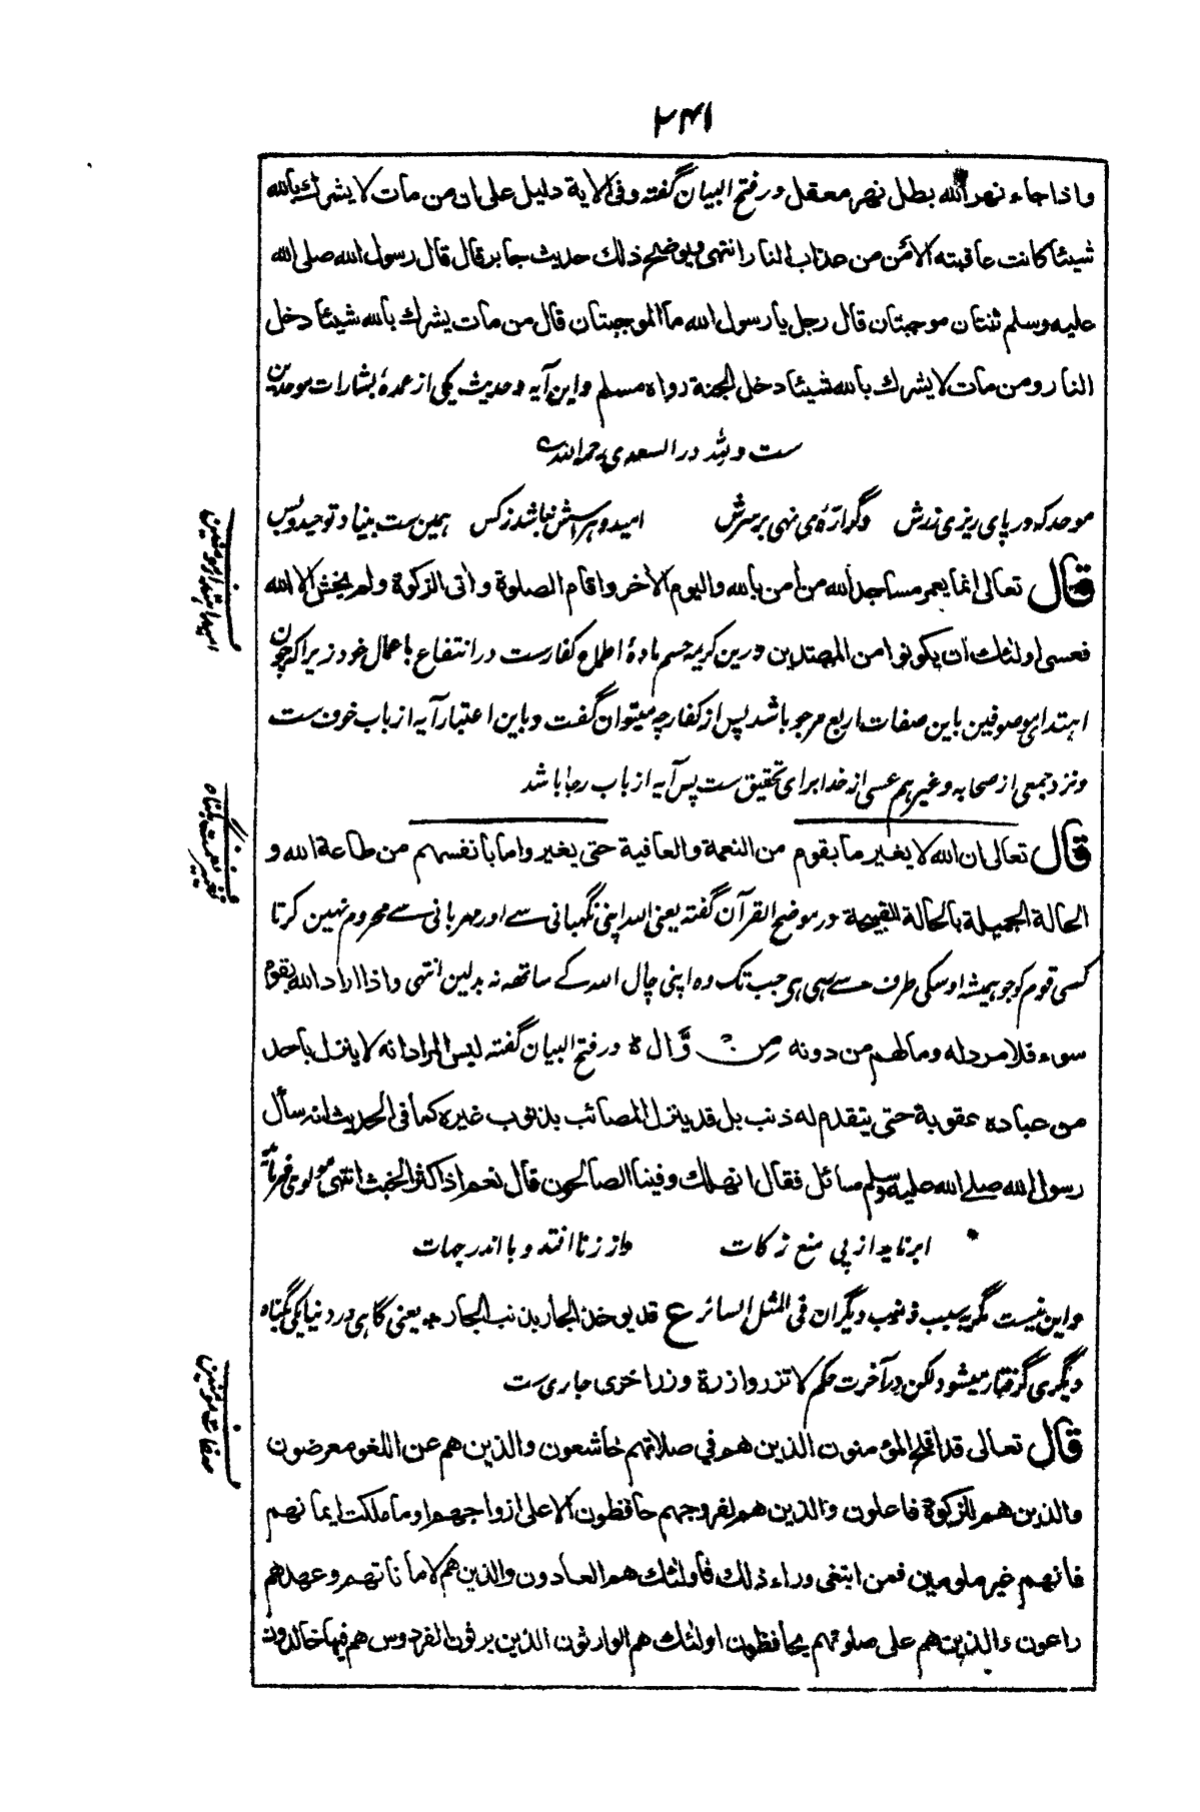 ۲۴۱
واذا جاء نهر الله بطل نهر معقل ودر فتح البیان گفته وفی الایة دلیل علی ان من مات لا یشرك بالله
شیئا کانت عاقبته الامن من عذاب النار انتهی ویوضح ذلك حدیث جابر قال قال رسول الله صلی الله
علیه وسلم ثنتان موجبتان قال رجل یا رسول الله ما الموجبتان قال من مات یشرك بالله شیئا دخل
النار ومن مات لا یشرك بالله شیئا دخل الجنة رواه مسلم واین آیه وحدیث یکی از عمدهٔ بشارات موحدین
ست ولله در السعدی رحمه الله
موحد که در پای ریزی زرش وگر ارّه‌ی نهی بر سرش امید و هراسش نباشد زکس همین ست بنیاد توحید و بس
قال تعالی انما یعمر مساجد الله من امن بالله والیوم الاخر واقام الصلوة واتی الزکوة ولم یخش الا الله
فعسی اولئك ان یکونوا من المهتدین درین کریمه حسم مادهٔ اطماع کفارست در انتفاع باعمال خود زیراکه چون
اهتدای موصوفین باین صفات اربع مرجو باشد پس از کفار چه میتوان گفت وباین اعتبار آیه از باب خوف ست
ونزد جمعی از صحابه وغیرهم عسی از خدا برای تحقیق ست پس آیه از باب رجا باشد
قال تعالی ان الله لا یغیر ما بقوم من النعمة والعافیة حتی یغیروا ما بانفسهم من طاعة الله و
الحالة الجمیلة بالحالة القبیحة در موضح القرآن گفته یعنی الله اپنی نگهبانی سے اور مهربانی سے محروم نهین کرتا
کسی قوم کو جو همیشه اوسکی طرف سے رهی هی جب تک وه اپنی چال الله کے ساتهه نه بدلین انتهی واذا اراد الله بقوم
سوء فلا مرد له وما لهم من دونه مِن وَّالٍ ه ودر فتح البیان گفته لیس المراد انه لا ینزل باحد
من عباده عقوبة حتی یتقدم له ذنب بل قد ینزل المصائب بذنوب غیره کما فی الحدیث انه سأل
رسول الله صلی الله علیه وسلم سائل فقال انهلك وفینا الصالحون قال نعم اذا کثر الخبث انتهی مولوی فرماید
ابر ناید از پی منع زکات واز زنا افتد وبا اندر جهات
واین نیست مگر بسبب ذنوب دیگران فی المثل السائر ع قد یوخذ الجار بذنب الجار ÷ یعنی گاهی در دنیا یکی بگناه
دیگری گرفتار میشود لکن در آخرت حکم لا تزر وازرة وزر اخری جاری ست
قال تعالی قد افلح المؤمنون الذین هم فی صلاتهم خاشعون والذین هم عن اللغو معرضون
والذین هم للزکوة فاعلون والذین هم لفروجهم حافظون الا علی ازواجهم او ما ملکت ایمانهم
فانهم غیر ملومین فمن ابتغی وراء ذلك فاولئك هم العادون والذین هم لاماناتهم وعهدهم
راعون والذین هم علی صلوتهم یحافظون اولئك هم الوارثون الذین یرثون الفردوس هم فیها خالدون
تغییر نعمت بگناه
صفات مومنین